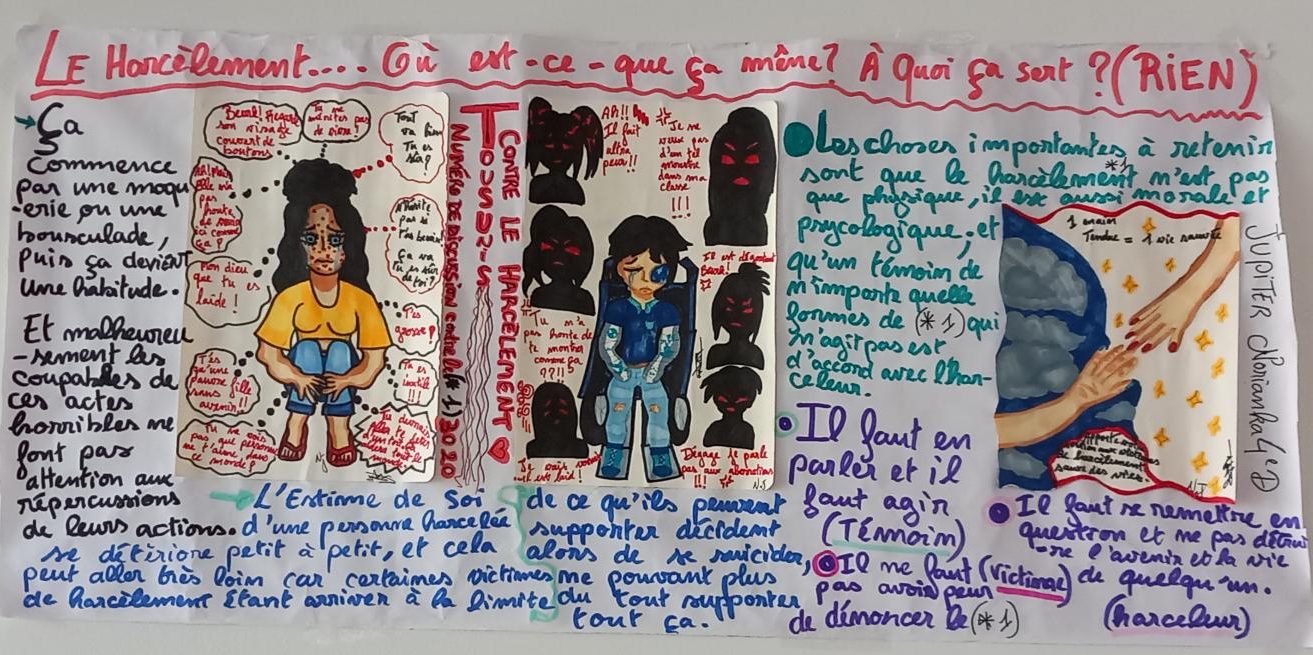 LE Harcèlement.... Où est-ce-que ça mène? À Quoi ça sert ? (RIEN)
→ Ça
Commence
par une moqu
-erie ou une
bousculade,
puis ça devient
une habitude.
Et malheureu
-sement les
coupables de
ces actes
horribles ne
font pas
attention aux
répercussions
de leurs actions.
Beurk! Regarde
son visage
couvert de
boutons
Tu ne
mérites pas
de vivre!
Tout
va bien
Tu es
sûr?
Mon dieu
que tu es
laide!
T'es
grosse!
T'es
qu'une
pauvre fille
sans
avenir!!
Tu es
inutile
!!!
Tu ne vois
pas que personne
ne t'aime dans
ce monde?
TOUS UNIS
CONTRE LE HARCÈLEMENT ♥
NUMÉRO DE DISCUSSION contre le (*1) 3020
AH!!
Il fait
ultra
peur!!
Je ne
veux pas
d'un tel
monstre
dans ma
classe
!!!
Il est dégoutant
Beurk!
Tu n'a
pas honte de
te montrer
comme ça
??!!
Dégage je parle
pas aux abominations
!!!
N.J
→ L'Estime de Soi
d'une personne harcelée
se détériore petit à petit, et cela
peut aller très loin car certaines victimes
de harcèlement étant arriver à la limite
de ce qu'ils peuvent
supporter décident
alors de se suicider,
ne pouvant plus
du tout supporter
tout ça.
Les choses importantes à retenir
sont que le harcèlement *1 n'est pas
que physique, il est aussi morale et
psycologique, et
qu'un témoin de
n'importe quelle
formes de (*1) qui
n'agit pas est
d'accord avec l'har-
celeur.
Il faut en
parler et il
faut agir
(Témoin)
Il ne faut (victime)
pas avoir peur
de dénoncer le (*1)
1 main
Tendue = 1 vie sauvée
N.J
JUPITER Norianka 4eD
Il faut se remettre en
question et ne pas détrui
-re l'avenir et la vie
de quelqu'un.
(harceleur)